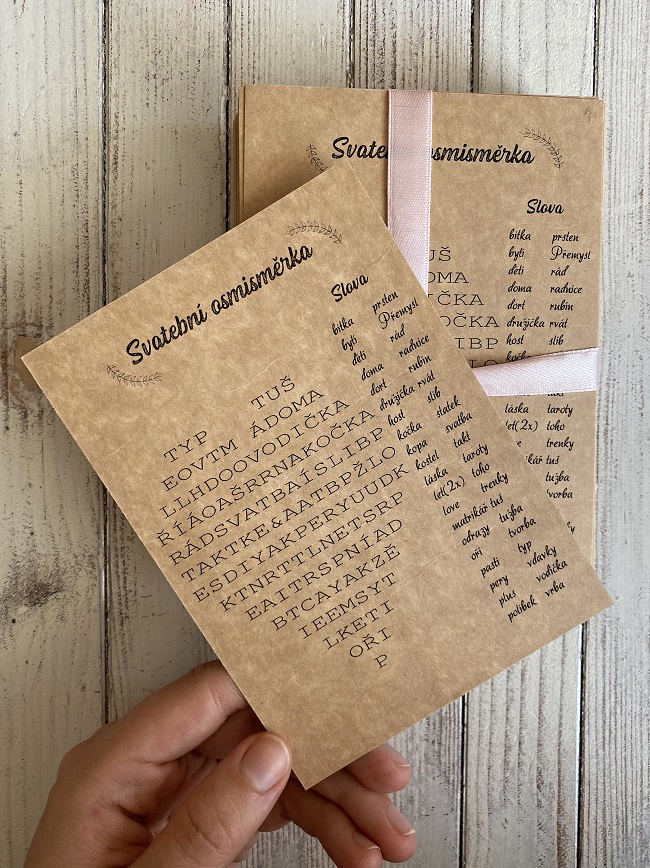 Svatební osmisměrka
Slova
TYP TUŠ
EOVTM ÁDOMA
LLHDOOVODIČKA
ŘÍÁOAŠRRNAKOČKA
RÁDSVATBAÍSLIBP
TAKTKE&AATBPŽLO
ESDIYAKPERYUUDK
KTNRTTLNETSRP
EAITRSPNÍAD
BTCAYAKZĚ
IEEMSYT
LKETI
OŘI
P
bitka prsten
byti Přemysl
děti rád
doma radnice
dort rubín
družička rvát
host slib
kočka statek
kopa svatba
kostel takt
láska taroty
let(2x) toho
love trenky
matrikář tuš
odrazy tužba
oři tvorba
pasti typ
pery vdavky
plus vodička
polibek vrba
osmisměrka
Slova
UŠ
DOMA
IČKA
OČKA
LIBP
bitka prsten
byti Přemysl
děti rád
doma radnice
dort rubín
družička rvát
host slib
láska taroty
let(2x) toho
trenky
tuš
tužba
tvorba